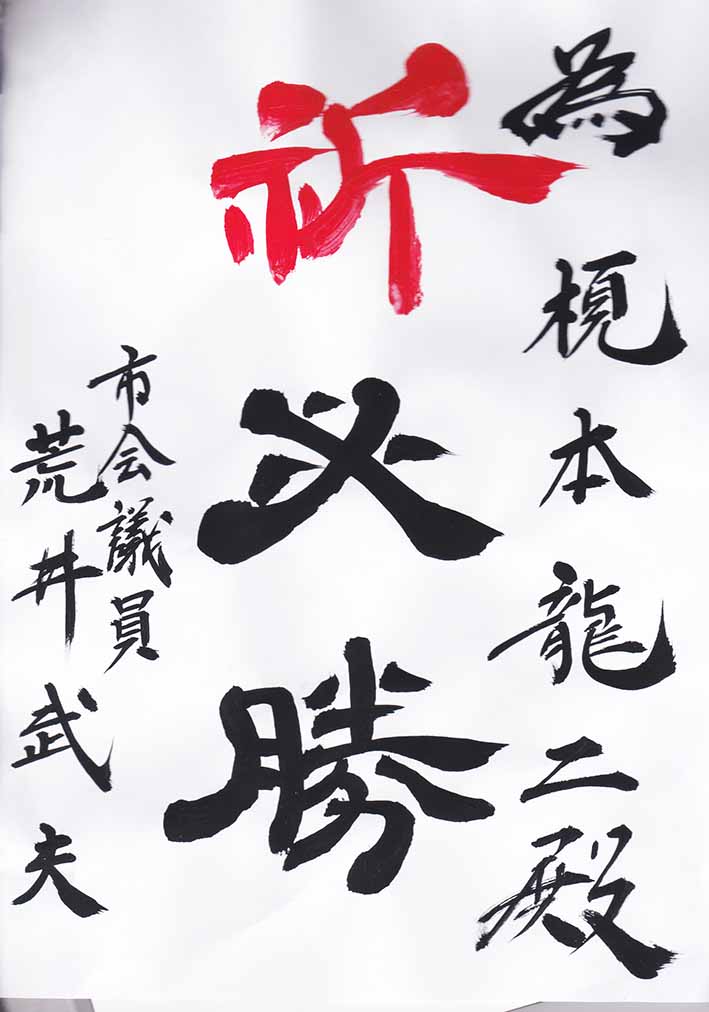 為梘本龍二殿
祈必勝
市会議員
荒井武夫